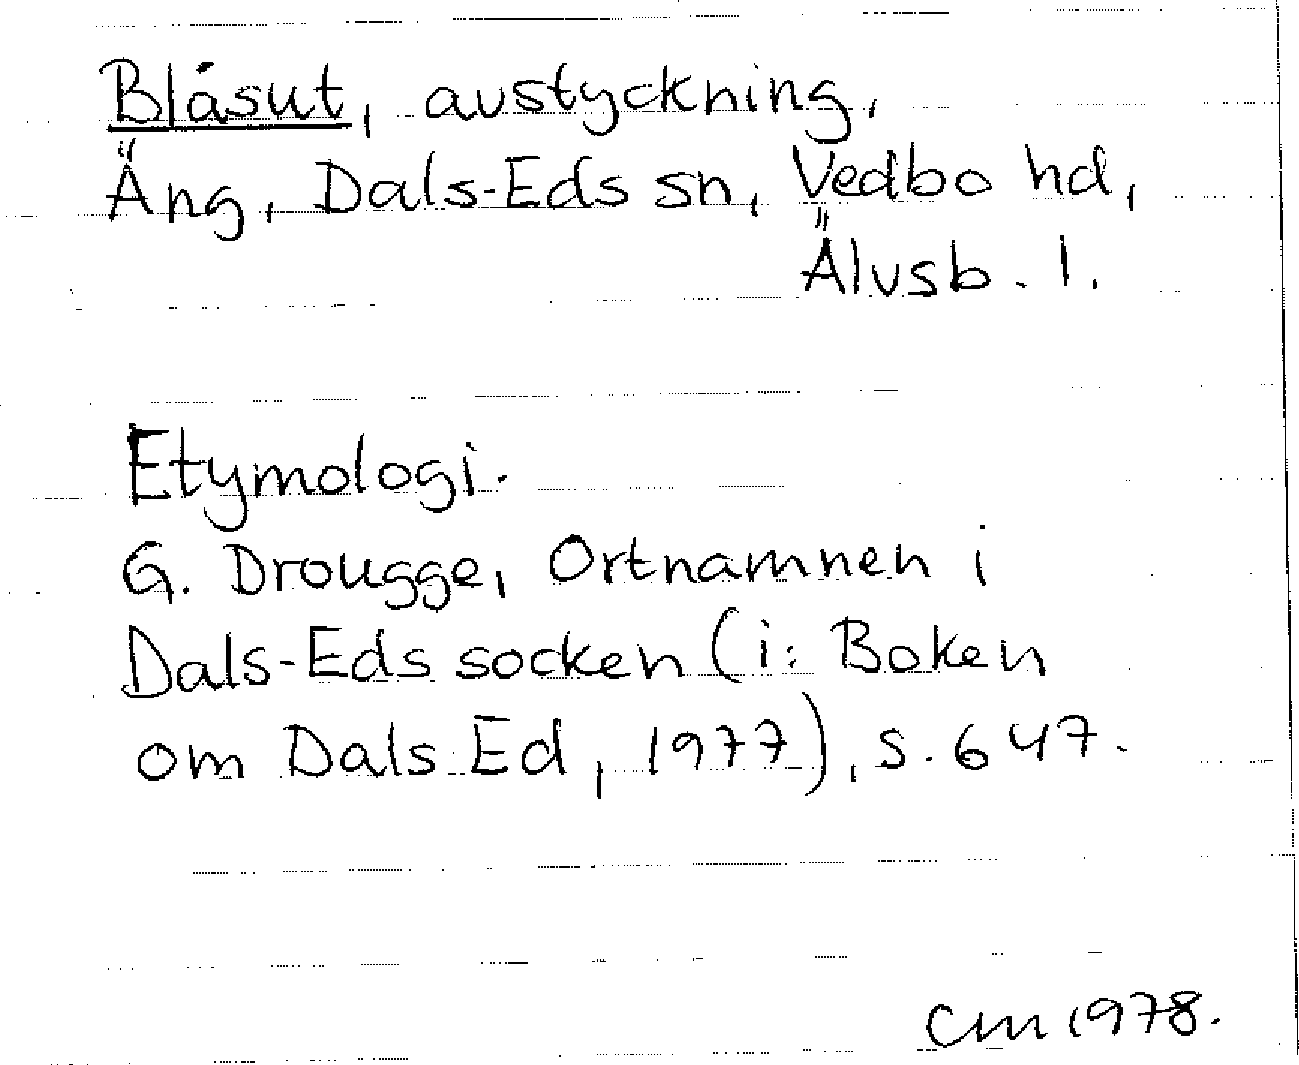 Blåsut, avstyckning,
Äng, Dals-Eds sn, Vedbo hd,
Älvsb. l.
Etymologi.
G. Drougge, Ortnamnen i
Dals-Eds socken (i: Boken
om Dals Ed, 1977), s. 647.
CM 1978.